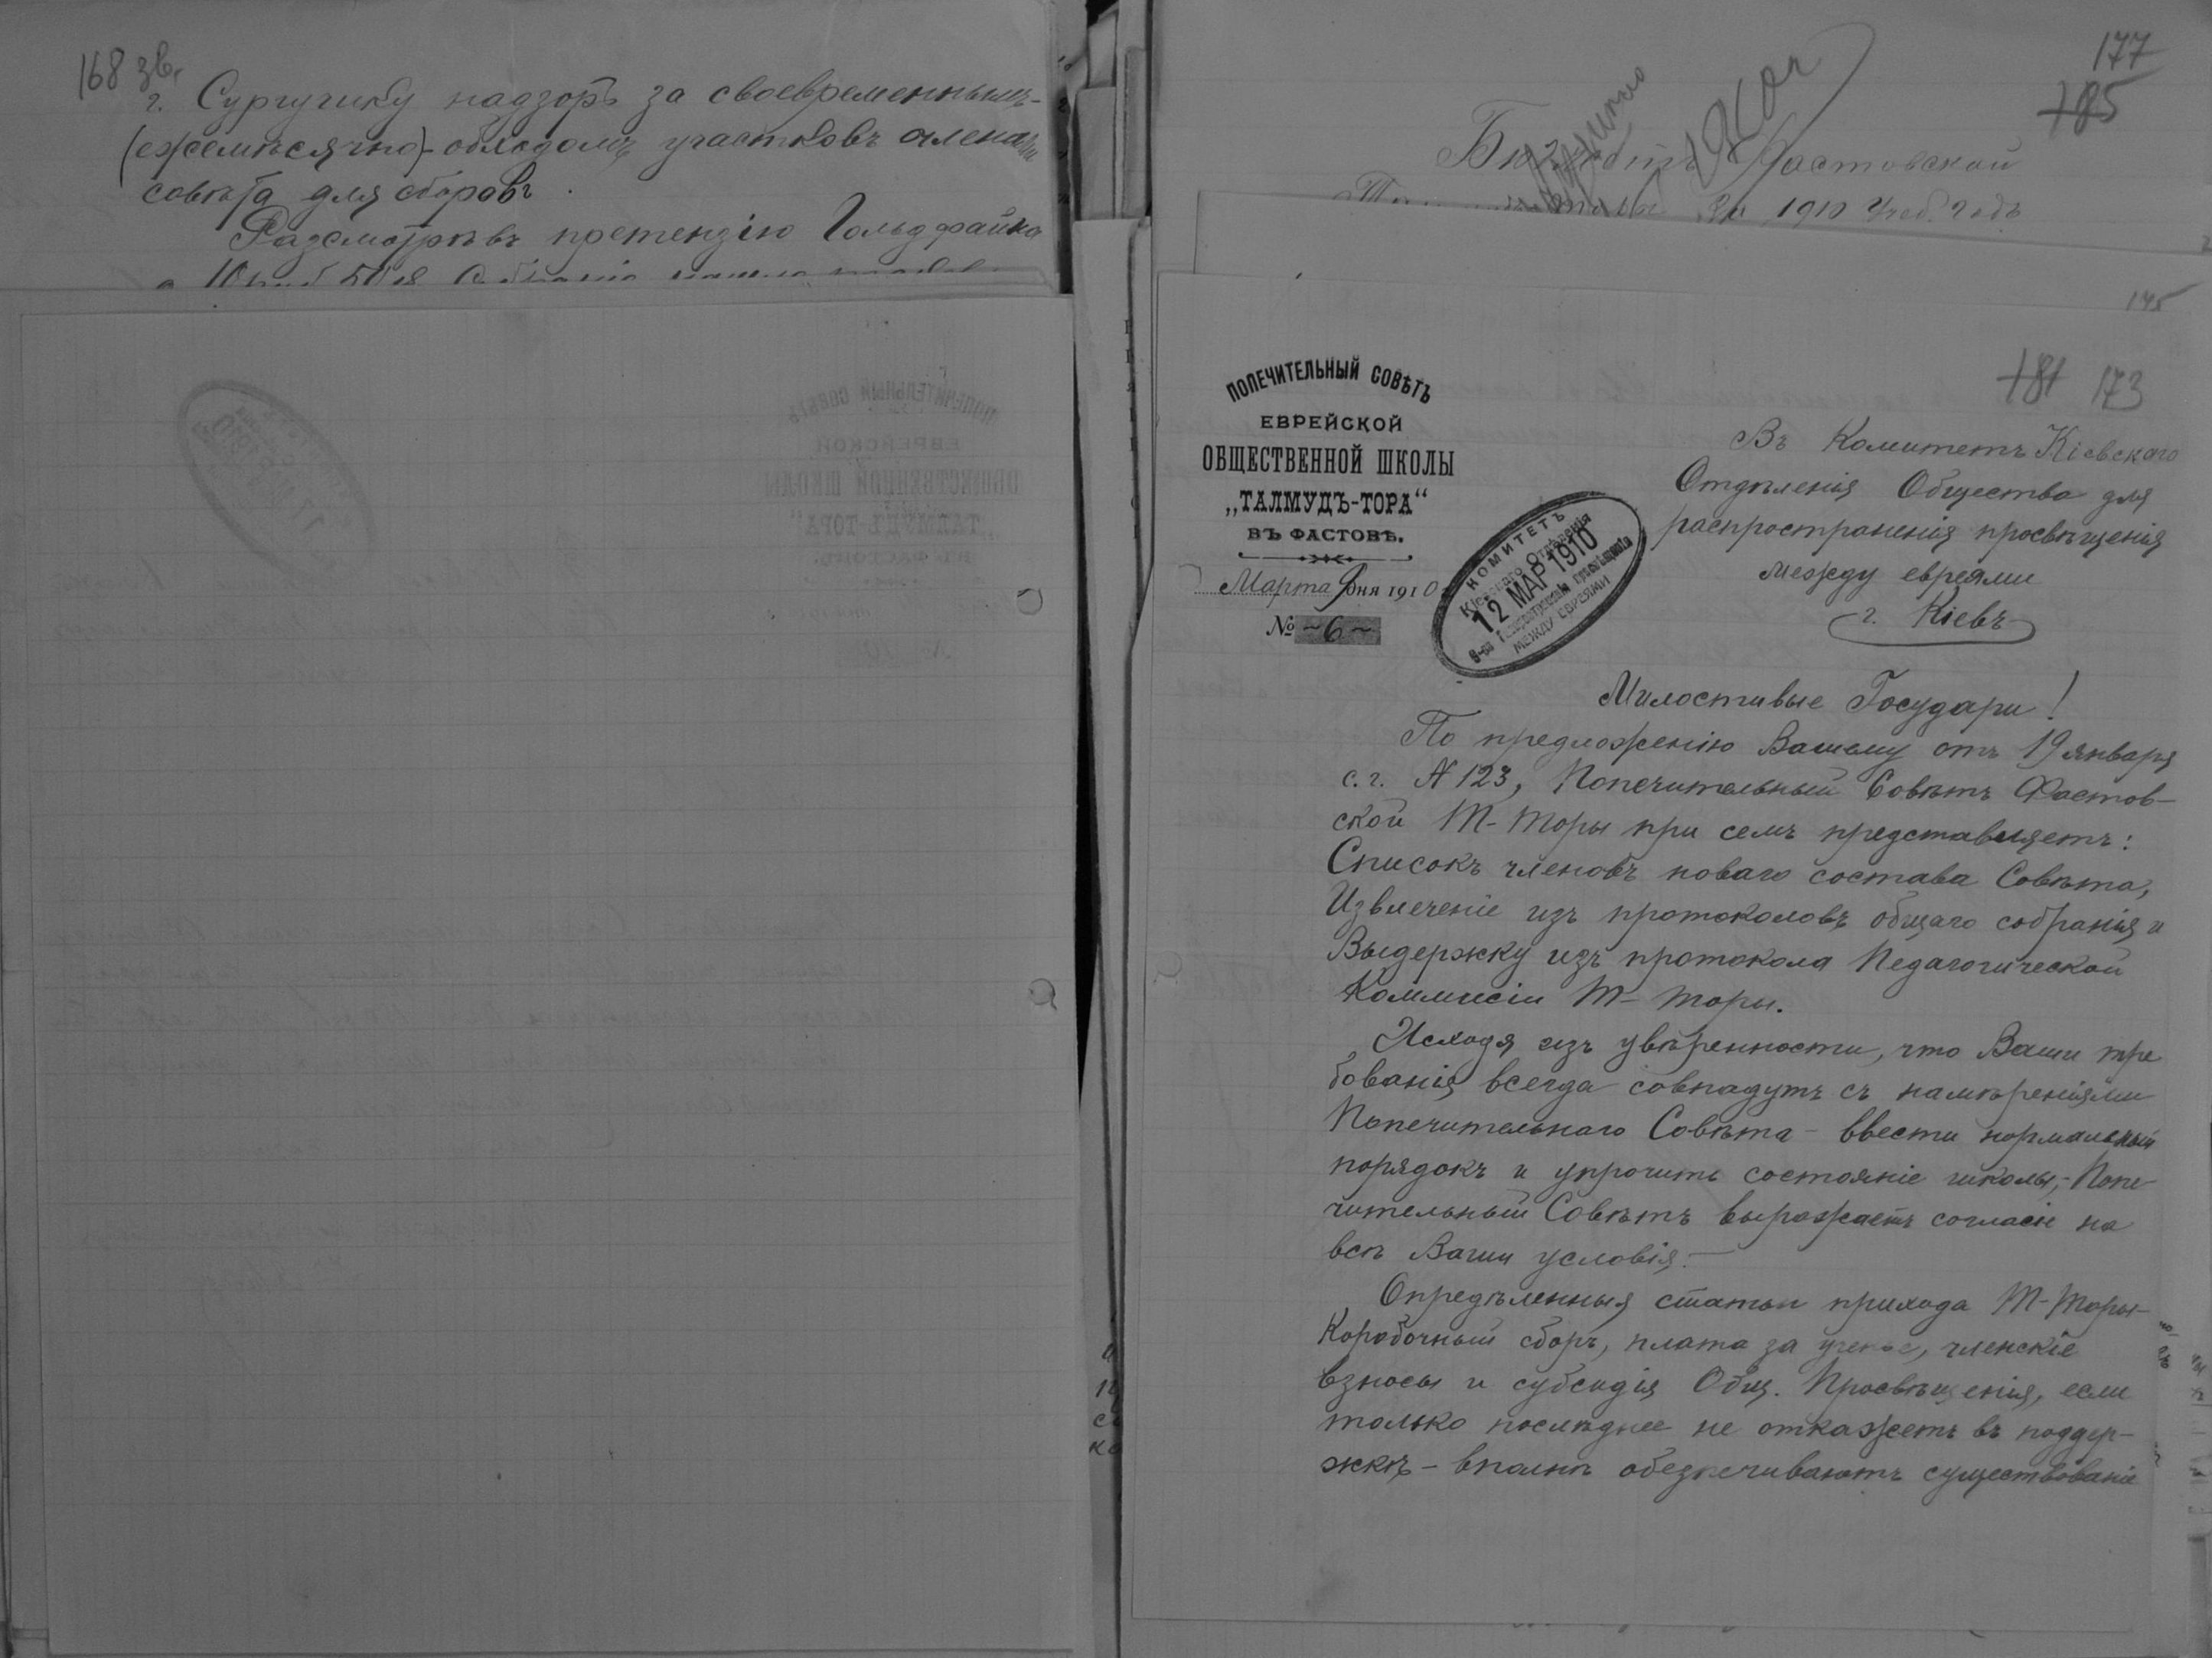 168 зв.
г. Сургучику надзоръ за своевременнымъ-
(ежемѣсячно)-обходомъ участковъ членами
совѣта для сборовъ.
Разсмотрѣвъ претензію Гольдфайна
177
185
Бюджетъ Фастовской
на 1910 учеб. годъ
175
181 173
ПОПЕЧИТЕЛЬНЫЙ СОВѢТЪ
ЕВРЕЙСКОЙ
ОБЩЕСТВЕННОЙ ШКОЛЫ
„ТАЛМУДЪ-ТОРА“
ВЪ ФАСТОВѢ.
Марта 9 дня 1910
№ ~6~
КОМИТЕТЪ
Кіевскаго Отдѣленія
12 МАР 1910
О-ва Распространенія Просвѣщенія
МЕЖДУ ЕВРЕЯМИ
Въ Комитетъ Кіевскаго
Отдѣленія Общества для
распространенія просвѣщенія
между евреями
г. Кіевъ
Милостивые Государи!
По предложенію Вашему отъ 19 января
с.г. N 123, Попечительный Совѣтъ Фастов-
ской Т-Торы при семъ представляетъ:
Списокъ членовъ новаго состава Совѣта,
Извлеченіе изъ протоколовъ общаго собранія и
Выдержку изъ протокола Педагогической
Коммисіи Т-Торы.
Исходя изъ увѣренности, что Ваши тре
бованія всегда совпадутъ съ намѣреніями
Попечительнаго Совѣта - ввести нормальный
порядокъ и упрочить состояніе школы,- Попе-
чительный Совѣтъ выражаетъ согласіе на
всѣ Ваши условія.-
Опредѣленныя статьи прихода Т-Торы-
Коробочный сборъ, плата за ученье, членскіе
взносы и субсидія Общ. Просвѣщенія, если
только послѣднее не откажетъ въ поддер-
жкѣ - вполнѣ обезпечиваютъ существованіе